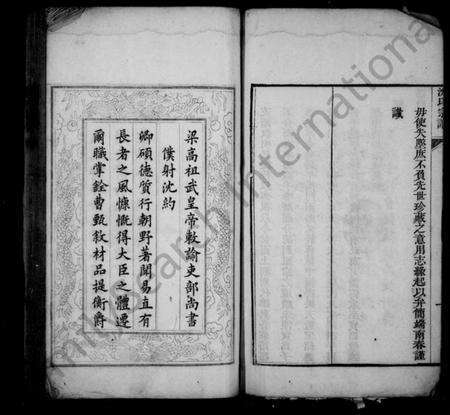 毋使失墜庶不負先世珍藏之意用志緣起以弁簡端南春謹
識
梁高祖武皇帝敕諭吏部尚書
僕射沈約
卿碩德質行朝野著聞易直有
長者之風慷慨得大臣之體遷
爾職掌銓曹甄敘材品提衡爵